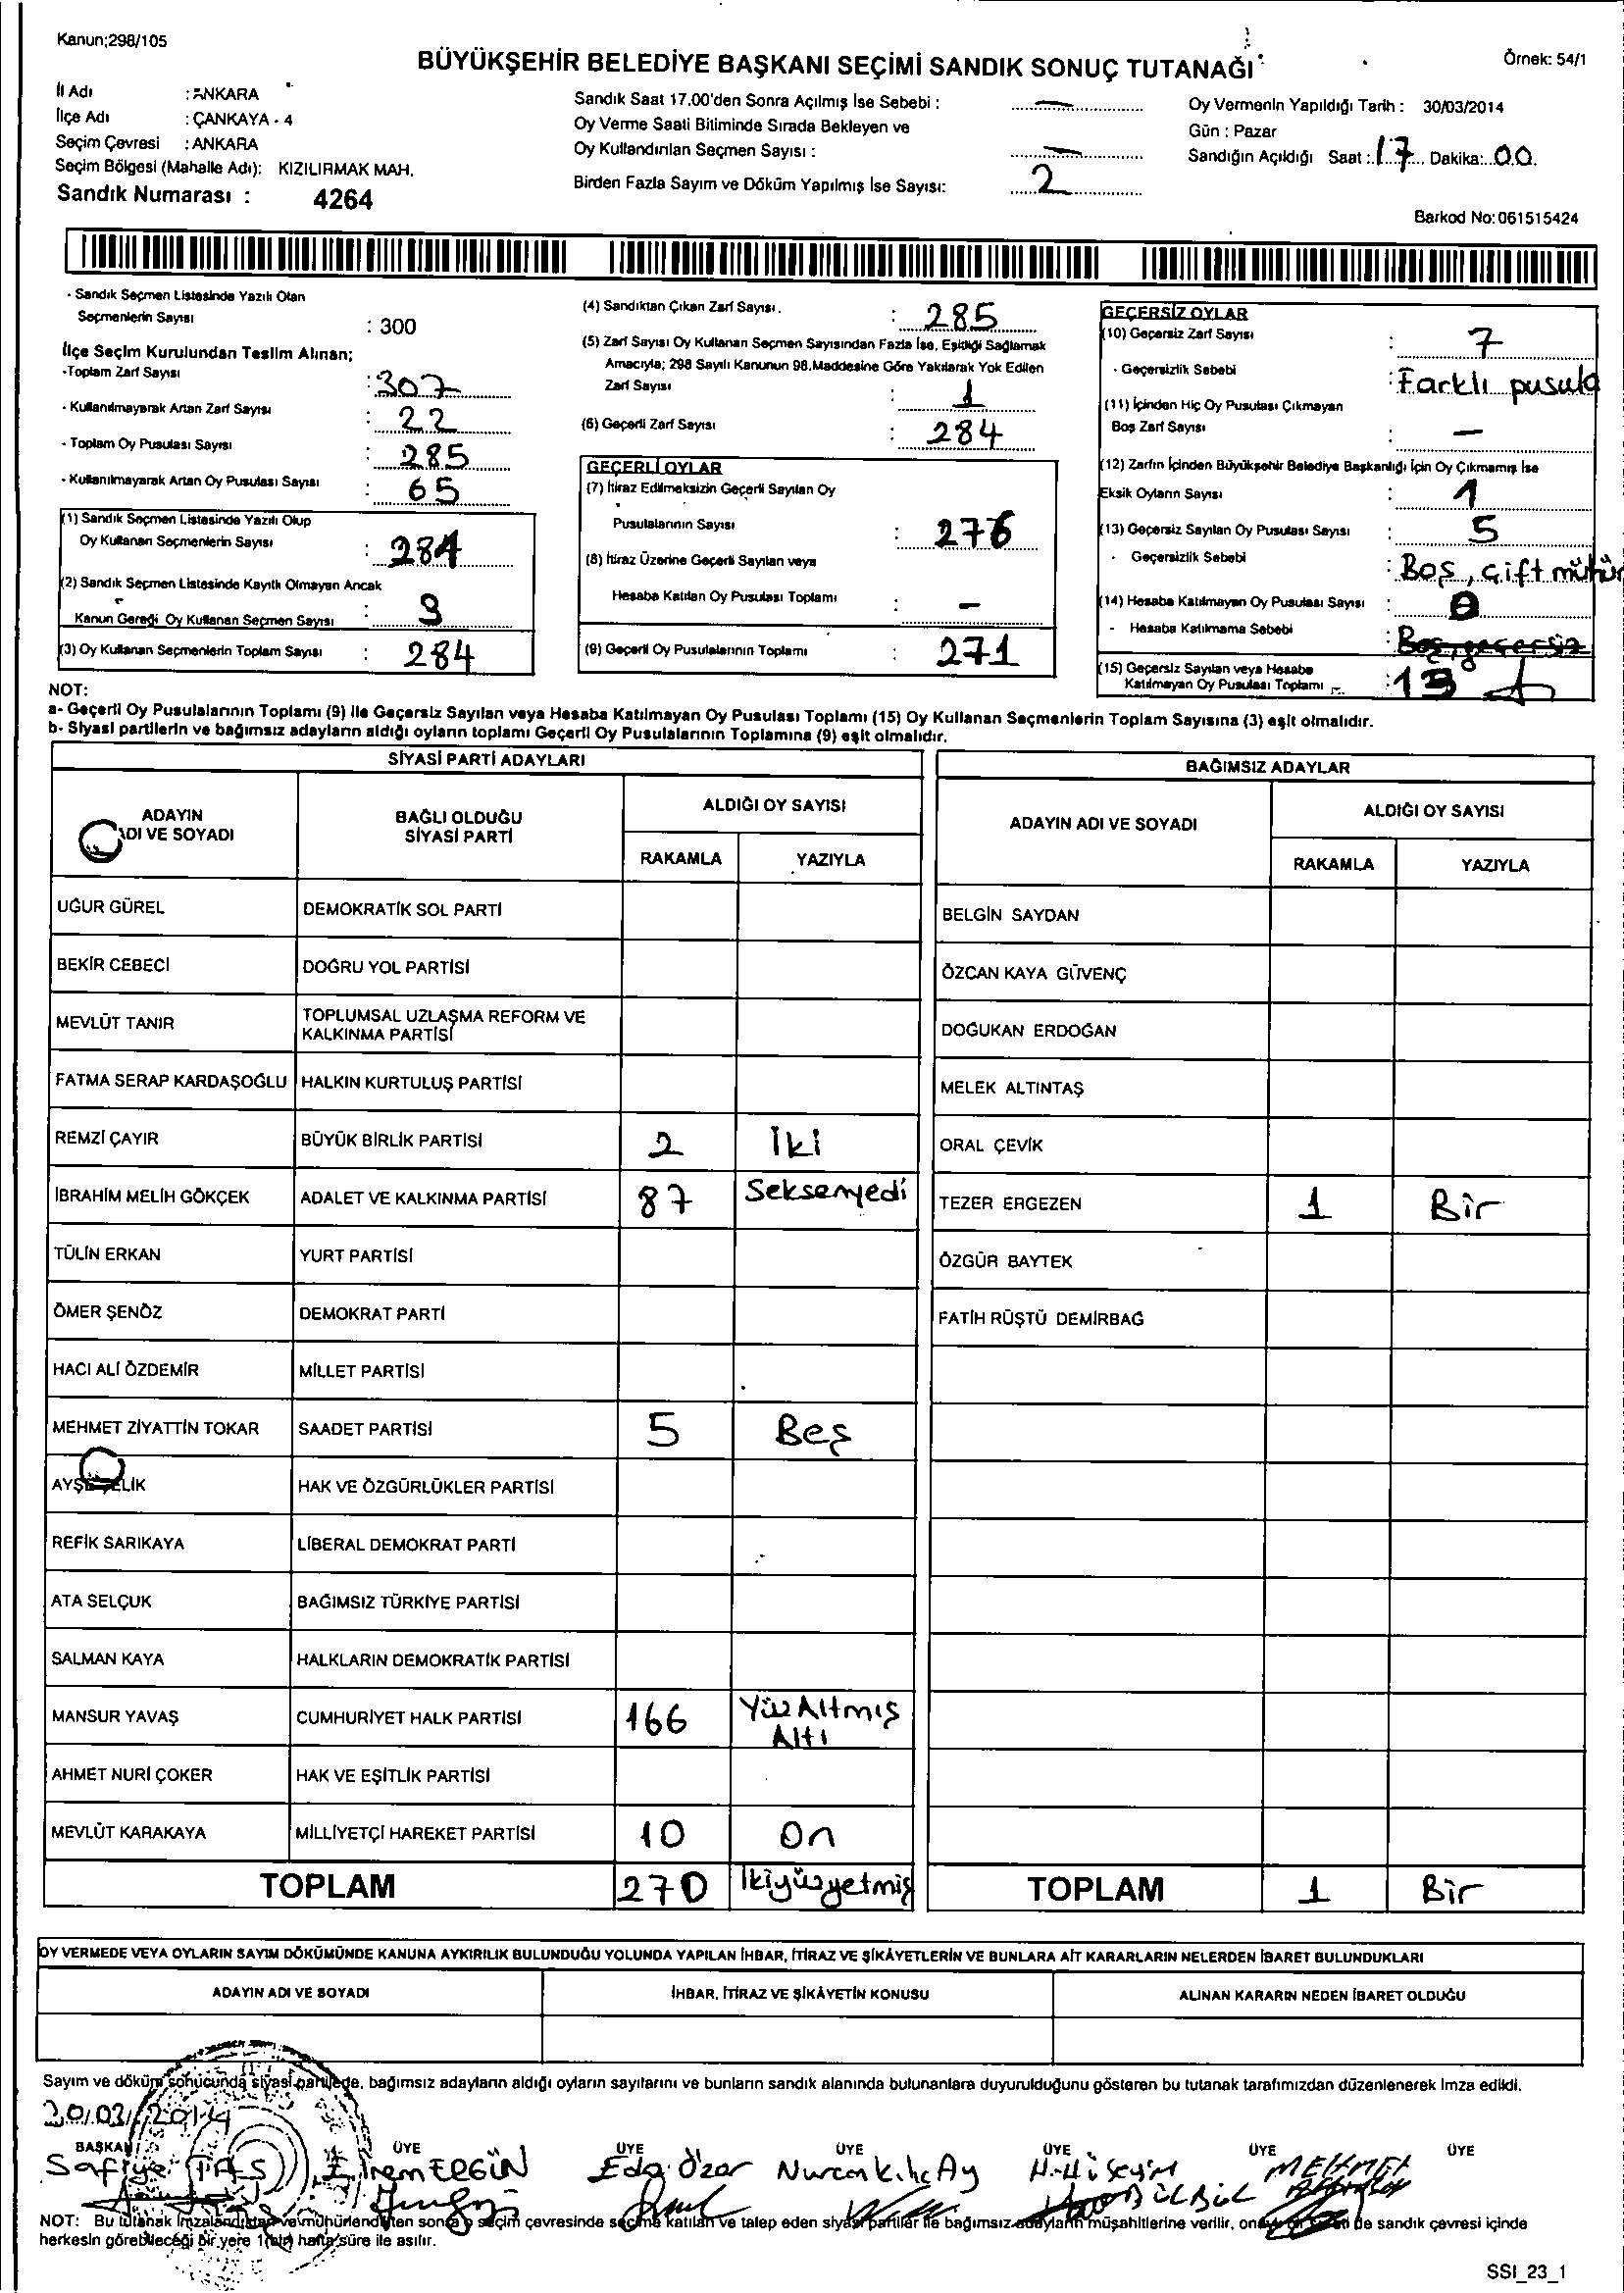 Kanun;298/105
BÜYÜKŞEHİR BELEDİYE BAŞKANI SEÇİMİ SANDIK SONUÇ TUTANAĞI
Örnek: 54/1
İl Adı : ANKARA
İlçe Adı : ÇANKAYA - 4
Seçim Çevresi : ANKARA
Seçim Bölgesi (Mahalle Adı): KIZILIRMAK MAH.
Sandık Numarası : 4264
Sandık Saat 17.00'den Sonra Açılmış İse Sebebi : —
Oy Verme Saati Bitiminde Sırada Bekleyen ve
Oy Kullandırılan Seçmen Sayısı : —
Birden Fazla Sayım ve Döküm Yapılmış İse Sayısı: 2
Oy Vermenin Yapıldığı Tarih : 30/03/2014
Gün : Pazar
Sandığın Açıldığı Saat : 17 Dakika: 00
Barkod No: 061515424
- Sandık Seçmen Listesinde Yazılı Olan
Seçmenlerin Sayısı : 300
İlçe Seçim Kurulundan Teslim Alınan;
-Toplam Zarf Sayısı : 307
- Kullanılmayarak Artan Zarf Sayısı : 22
- Toplam Oy Pusulası Sayısı : 285
- Kullanılmayarak Artan Oy Pusulası Sayısı : 65
(1) Sandık Seçmen Listesinde Yazılı Olup
Oy Kullanan Seçmenlerin Sayısı : 284
(2) Sandık Seçmen Listesinde Kayıtlı Olmayan Ancak
Kanun Gereği Oy Kullanan Seçmen Sayısı :
(3) Oy Kullanan Seçmenlerin Toplam Sayısı : 284
(4) Sandıktan Çıkan Zarf Sayısı. : 285
(5) Zarf Sayısı Oy Kullanan Seçmen Sayısından Fazla İse, Eşitliği Sağlamak
Amacıyla; 298 Sayılı Kanunun 98.Maddesine Göre Yakılarak Yok Edilen
Zarf Sayısı : 1
(6) Geçerli Zarf Sayısı : 284
GEÇERLİ OYLAR
(7) İtiraz Edilmeksizin Geçerli Sayılan Oy
Pusulalarının Sayısı : 276
(8) İtiraz Üzerine Geçerli Sayılan veya
Hesaba Katılan Oy Pusulası Toplamı : —
(9) Geçerli Oy Pusulalarının Toplamı : 271
GEÇERSİZ OYLAR
(10) Geçersiz Zarf Sayısı : 7
- Geçersizlik Sebebi : Farklı pusula
(11) İçinden Hiç Oy Pusulası Çıkmayan
Boş Zarf Sayısı : —
(12) Zarfın İçinden Büyükşehir Belediye Başkanlığı İçin Oy Çıkmamış İse
Eksik Oyların Sayısı : 1
(13) Geçersiz Sayılan Oy Pusulası Sayısı : 5
- Geçersizlik Sebebi : Boş, çift mühür
(14) Hesaba Katılmayan Oy Pusulası Sayısı :
- Hesaba Katılmama Sebebi : Boş, geçersiz
(15) Geçersiz Sayılan veya Hesaba
Katılmayan Oy Pusulası Toplamı : 13
NOT:
a- Geçerli Oy Pusulalarının Toplamı (9) ile Geçersiz Sayılan veya Hesaba Katılmayan Oy Pusulası Toplamı (15) Oy Kullanan Seçmenlerin Toplam Sayısına (3) eşit olmalıdır.
b- Siyasi partilerin ve bağımsız adayların aldığı oyların toplamı Geçerli Oy Pusulalarının Toplamına (9) eşit olmalıdır.
SİYASİ PARTİ ADAYLARI
ADAYIN ADI VE SOYADI
BAĞLI OLDUĞU SİYASİ PARTİ
ALDIĞI OY SAYISI
RAKAMLA YAZIYLA
UĞUR GÜREL DEMOKRATİK SOL PARTİ
BEKİR CEBECİ DOĞRU YOL PARTİSİ
MEVLÜT TANIR TOPLUMSAL UZLAŞMA REFORM VE
KALKINMA PARTİSİ
FATMA SERAP KARDAŞOĞLU HALKIN KURTULUŞ PARTİSİ
REMZİ ÇAYIR BÜYÜK BİRLİK PARTİSİ 2 İki
İBRAHİM MELİH GÖKÇEK ADALET VE KALKINMA PARTİSİ 87 Seksenyedi
TÜLİN ERKAN YURT PARTİSİ
ÖMER ŞENÖZ DEMOKRAT PARTİ
HACI ALİ ÖZDEMİR MİLLET PARTİSİ
MEHMET ZİYATTİN TOKAR SAADET PARTİSİ 5 Beş
AYŞE ÇELİK HAK VE ÖZGÜRLÜKLER PARTİSİ
REFİK SARIKAYA LİBERAL DEMOKRAT PARTİ
ATA SELÇUK BAĞIMSIZ TÜRKİYE PARTİSİ
SALMAN KAYA HALKLARIN DEMOKRATİK PARTİSİ
MANSUR YAVAŞ CUMHURİYET HALK PARTİSİ 166 Yüz Altmış
Altı
AHMET NURİ ÇOKER HAK VE EŞİTLİK PARTİSİ
MEVLÜT KARAKAYA MİLLİYETÇİ HAREKET PARTİSİ 10 On
TOPLAM 270 İkiyüzyetmiş
BAĞIMSIZ ADAYLAR
ADAYIN ADI VE SOYADI
ALDIĞI OY SAYISI
RAKAMLA YAZIYLA
BELGİN SAYDAN
ÖZCAN KAYA GÜVENÇ
DOĞUKAN ERDOĞAN
MELEK ALTINTAŞ
ORAL ÇEVİK
TEZER ERGEZEN 1 Bir
ÖZGÜR BAYTEK
FATİH RÜŞTÜ DEMİRBAĞ
TOPLAM 1 Bir
OY VERMEDE VEYA OYLARIN SAYIM DÖKÜMÜNDE KANUNA AYKIRILIK BULUNDUĞU YOLUNDA YAPILAN İHBAR, İTİRAZ VE ŞİKÂYETLERİN VE BUNLARA AİT KARARLARIN NELERDEN İBARET BULUNDUKLARI
ADAYIN ADI VE SOYADI
İHBAR, İTİRAZ VE ŞİKÂYETİN KONUSU
ALINAN KARARIN NEDEN İBARET OLDUĞU
Sayım ve döküm sonucunda siyasi partilerde, bağımsız adayların aldığı oyların sayılarını ve bunların sandık alanında bulunanlara duyurulduğunu gösteren bu tutanak tarafımızdan düzenlenerek imza edildi.
30/03/2014
BAŞKAN ÜYE ÜYE ÜYE ÜYE ÜYE ÜYE
Safiye TAŞ İrem ERGÜN Eda Özer Nurcan kılıç Ay H.Hüseyin BÜLBÜL MEHMET
NOT: Bu tutanak imzalandıktan ve mühürlendikten sonra o seçim çevresinde seçime katılan ve talep eden siyasi partiler ile bağımsız adayların müşahitlerine verilir, de sandık çevresi içinde
herkesin görebileceği bir yere 1(bir) hafta süre ile asılır.
SSI_23_1